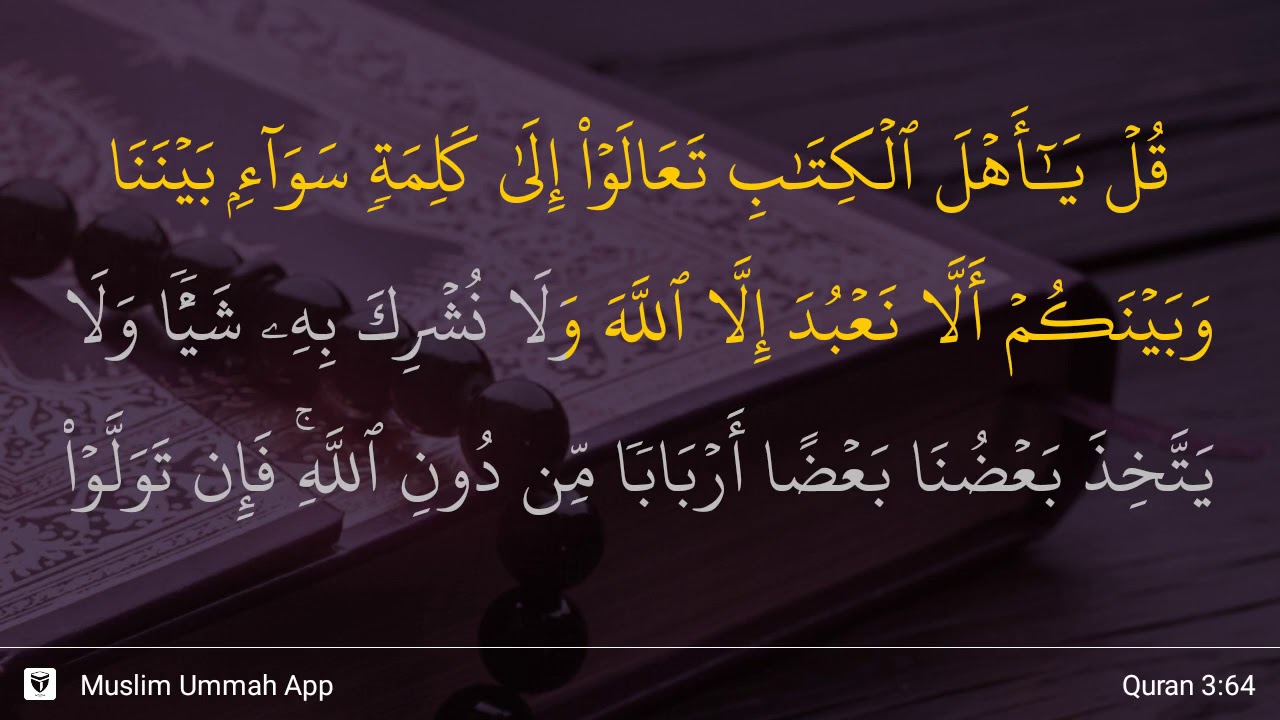 قُلۡ يَـٰٓأَهۡلَ ٱلۡكِتَـٰبِ تَعَالَوۡاْ إِلَىٰ كَلِمَةٖ سَوَآءِۭ بَيۡنَنَا
وَبَيۡنَكُمۡ أَلَّا نَعۡبُدَ إِلَّا ٱللَّهَ وَلَا نُشۡرِكَ بِهِۦ شَيۡـٔٗا وَلَا
يَتَّخِذَ بَعۡضُنَا بَعۡضًا أَرۡبَابٗا مِّن دُونِ ٱللَّهِۚ فَإِن تَوَلَّوۡاْ
Muslim Ummah App
Quran 3:64